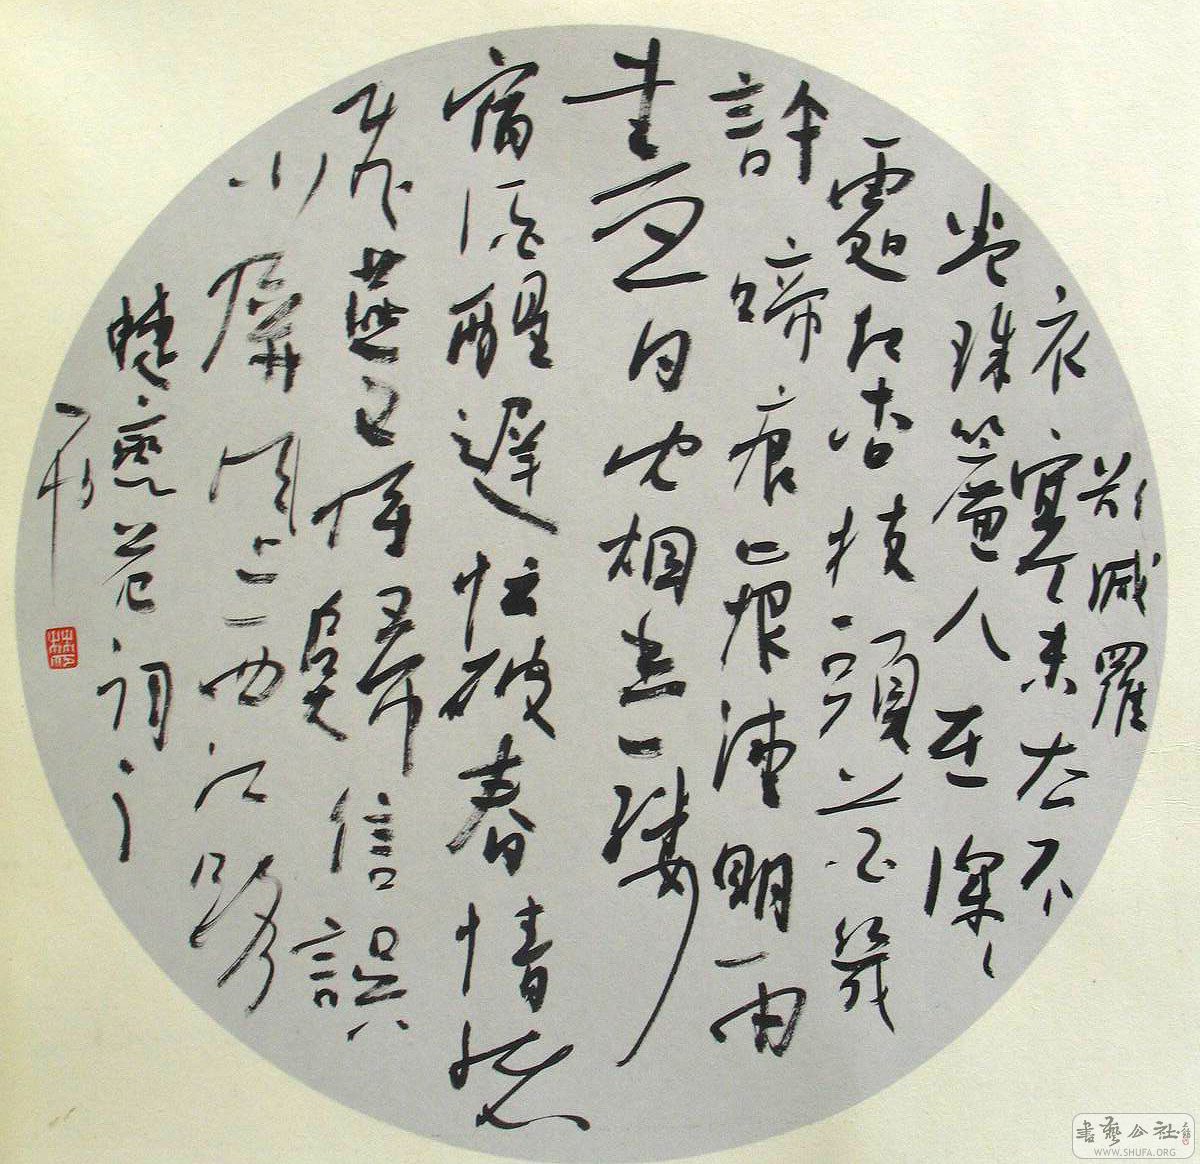 欲減羅
衣寒未去不
卷珠簾人在深〻
處紅杏枝頭花幾
許啼痕止恨清明雨
盡日沈烟香一縷
宿酒醒遲惱破春情緒
飛燕又將歸信誤
小屏風上西江路
蝶戀花詞
書藝公社
WWW.SHUFA.ORG